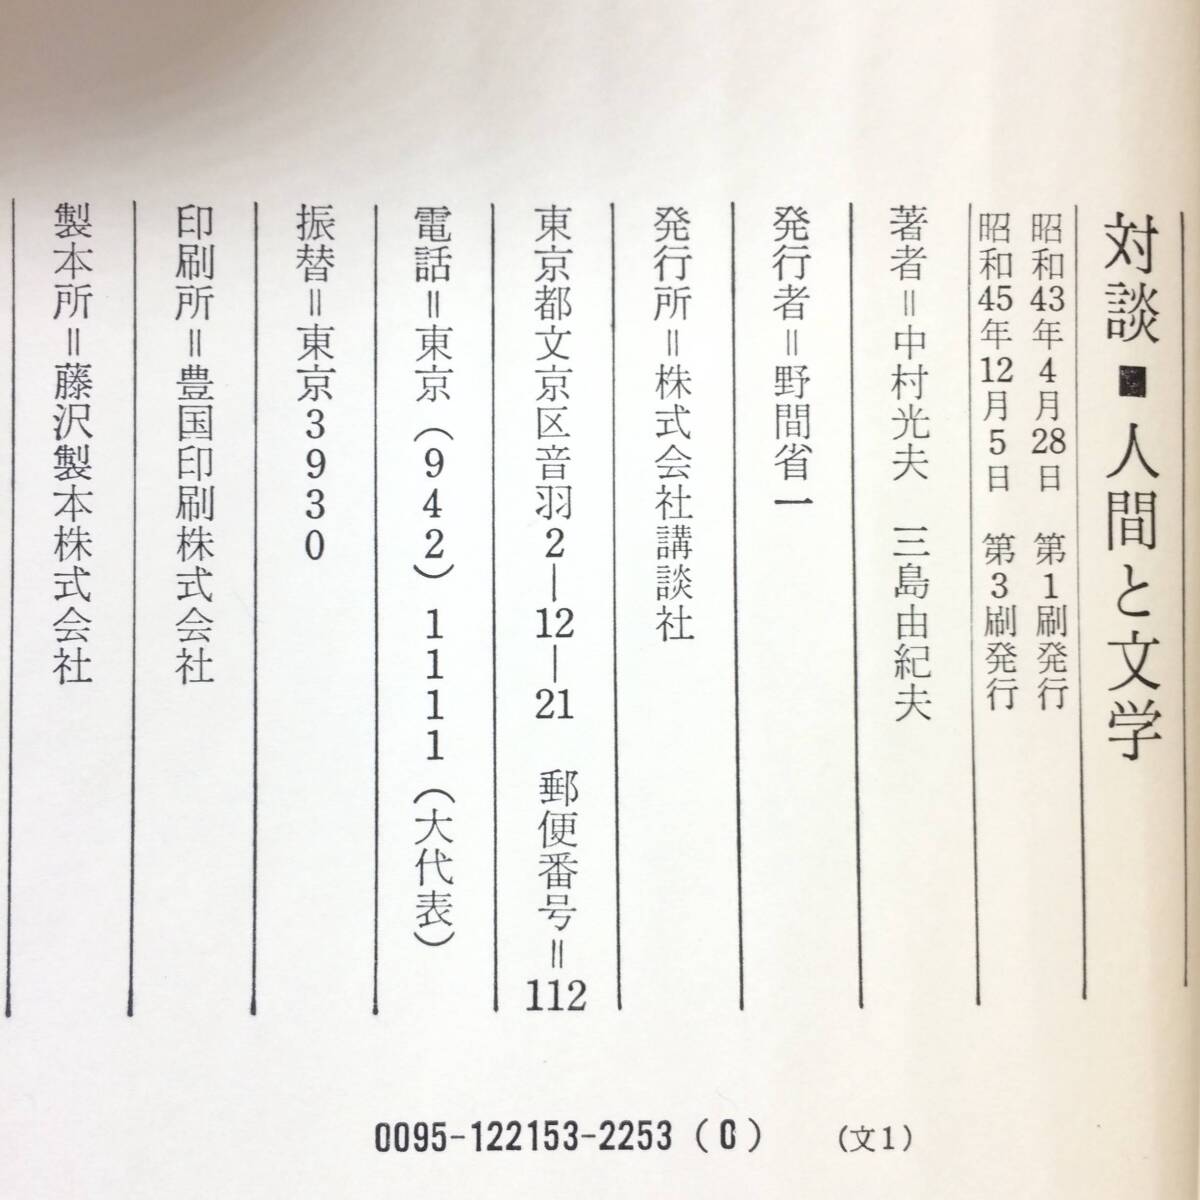 対談■人間と文学
昭和43年4月28日 第1刷発行
昭和45年12月5日 第3刷発行
著者＝中村光夫 三島由紀夫
発行者＝野間省一
発行所＝株式会社講談社
東京都文京区音羽2―12―21 郵便番号＝112
電話＝東京（942）1111（大代表）
振替＝東京3930
印刷所＝豊国印刷株式会社
製本所＝藤沢製本株式会社
0095-122153-2253 (0) （文1）